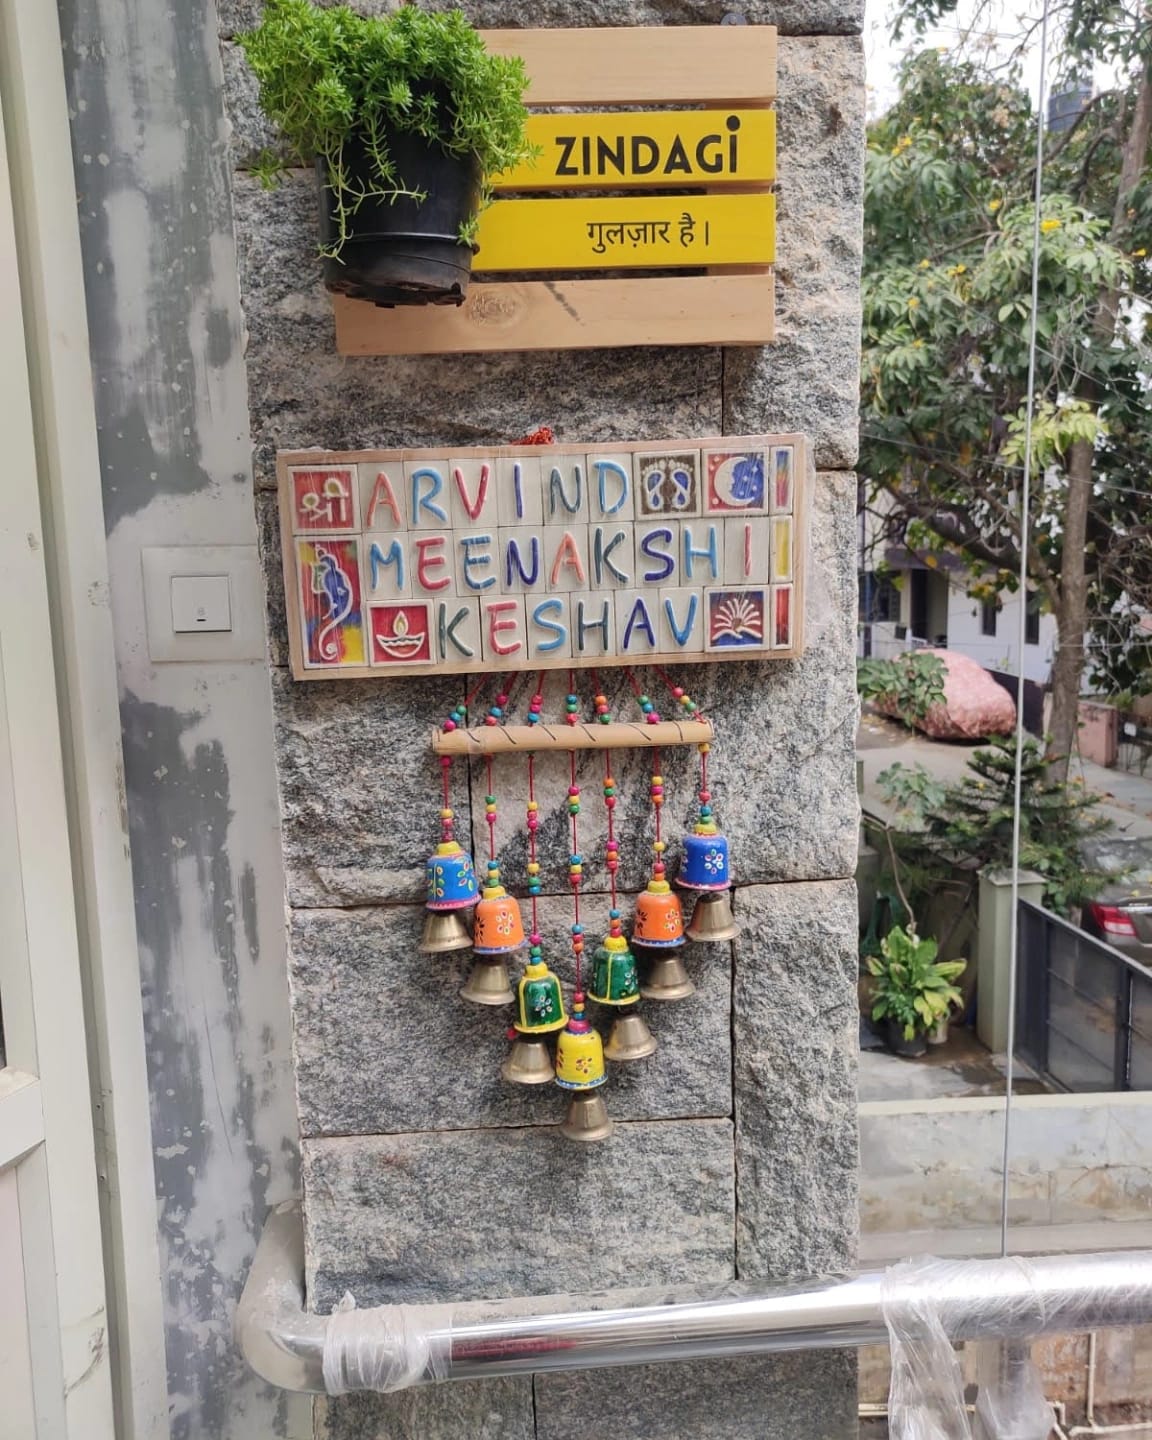 ZINDAGi
गुलज़ार है।
श्री ARVIND
MEENAKSHI
KESHAV